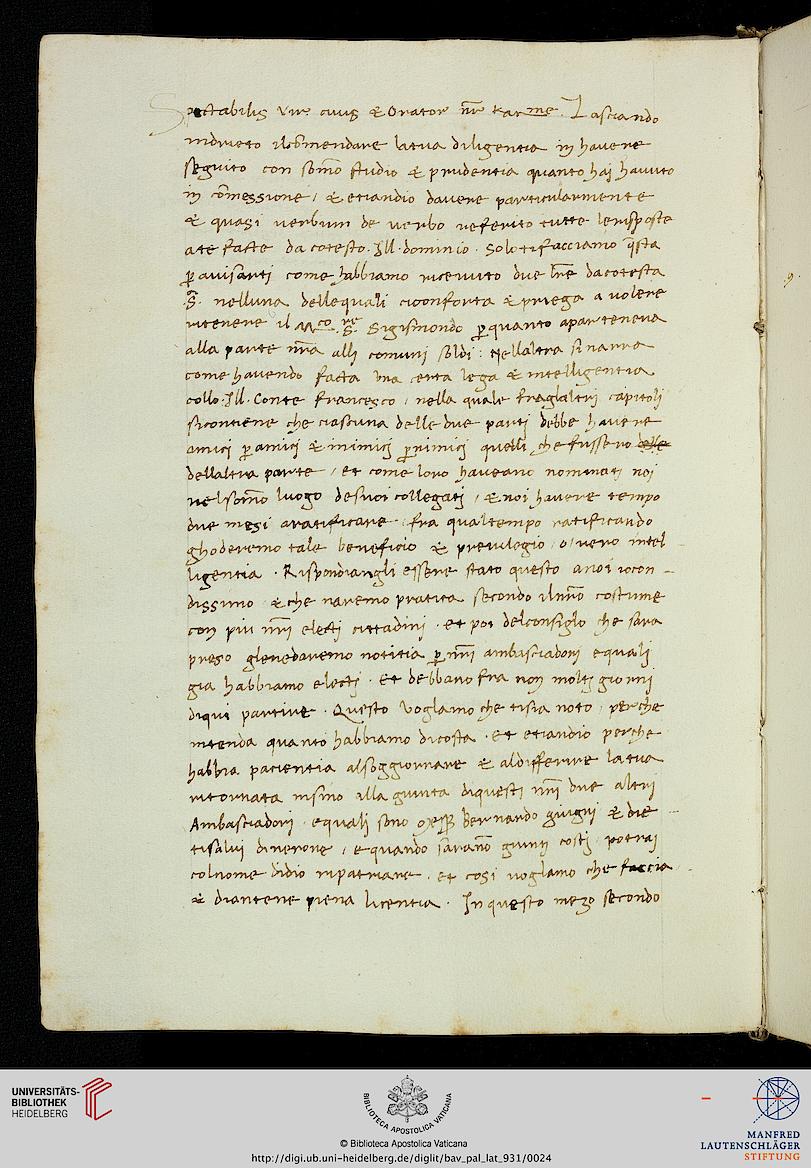 Spectabilis vir civis & Orator nr̄ kar.me. Lasciando
indrieto il cōmendare latua diligentia in havere
seguito con sōmo studio & prudentia quanto hai havuto
in cōmessione / & etiandio davere particularmente
& quasi verbum de verbo referito tutte lerisposte
ate facte da cotesto . Ill. dominio . Solo ti facciamo q̄sta
p̱ avisarti come habbiamo ricevuto due lr̄e dacotesta
.S. nelluna dellequali ciconforta & priega a volere
ritenere il M.co .re .S. Sigismondo p̱ quanto aparteneva
alla parte nr̄a alli comuni soldi : Nellaltra si narra
come havendo facta una certa lega & intelligentia
collo . Ill. Conte francesco / nella quale fraglaltri capitoli
sicontiene che ciascuna delle due parti debbe havere
amici p̱ amici & inimici p̱ nimici quelli che fussero delle
dellaltra parte / et come loro haveano nominati noi
nelsōmo luogo desuoi collegati / & noi havere tempo
due mesi aratificare / fra qualtempo ratificando
ghoderemo tale beneficio & previlegio / o / vero intel
ligentia . Rispondiangli essere stato questo anoi iocon
dissimo & che naremo pratica secondo ilnr̄o costume
con piu nr̄i electi cittadini . et poi delconsiglo che sara
preso glenedaremo notitia p̱ nr̄i ambasciadori equali
gia habbiamo electi . Et debbano fra non molti giorni
diqui partire . Questo voglamo che tisia noto / perche
intenda quanto habbiamo dicosta . et etiandio perche
habbia pacientia alsoggiornare & aldifferire latua
ritornata insino alla giunta diquesti nr̄i due altri
Ambasciadori . equali sono Bernardo giugni & Die
tisalvi dinerone / e quando sarañno giunti costi / potrai
colnome didio ripatriare . et cosi voglamo che faccia
& diantene piena licentia . In questo mezo secondo
UNIVERSITÄTS-
BIBLIOTHEK
HEIDELBERG
BIBLIOTHECA APOSTOLICA VATICANA
© Biblioteca Apostolica Vaticana
http://digi.ub.uni-heidelberg.de/diglit/bav_pal_lat_931/0024
MANFRED
LAUTENSCHLÄGER
STIFTUNG